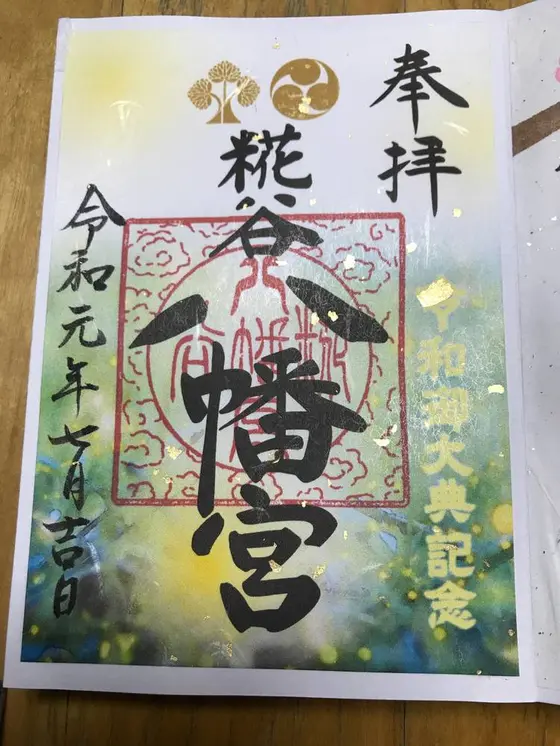 奉拝
令和御大典記念
糀谷八幡宮
令和元年七月吉日